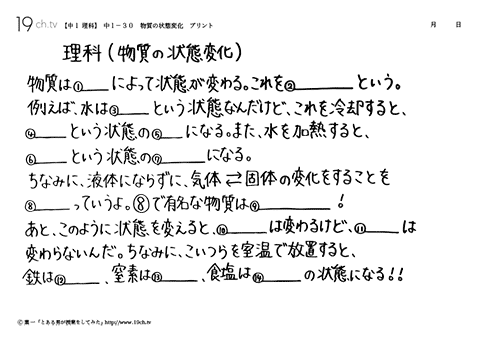 19 ch.tv 【中1 理科】 中1-30 物質の状態変化 プリント 月 日
理科(物質の状態変化)
物質は①____によって状態が変わる。これを②________という。
例えば、水は③____という状態なんだけど、これを冷却すると、
④____という状態の⑤____になる。また、水を加熱すると、
⑥____という状態の⑦______になる。
ちなみに、液体にならずに、気体⇄固体の変化をすることを
⑧____っていうよ。⑧で有名な物質は⑨________!
あと、このように状態を変えると、⑩____は変わるけど、⑪____は
変わらないんだ。ちなみに、こいつらを室温で放置すると、
鉄は⑫____、窒素は⑬____、食塩は⑭____の状態になる!!
Ⓒ葉一「とある男が授業をしてみた」http://www.19ch.tv